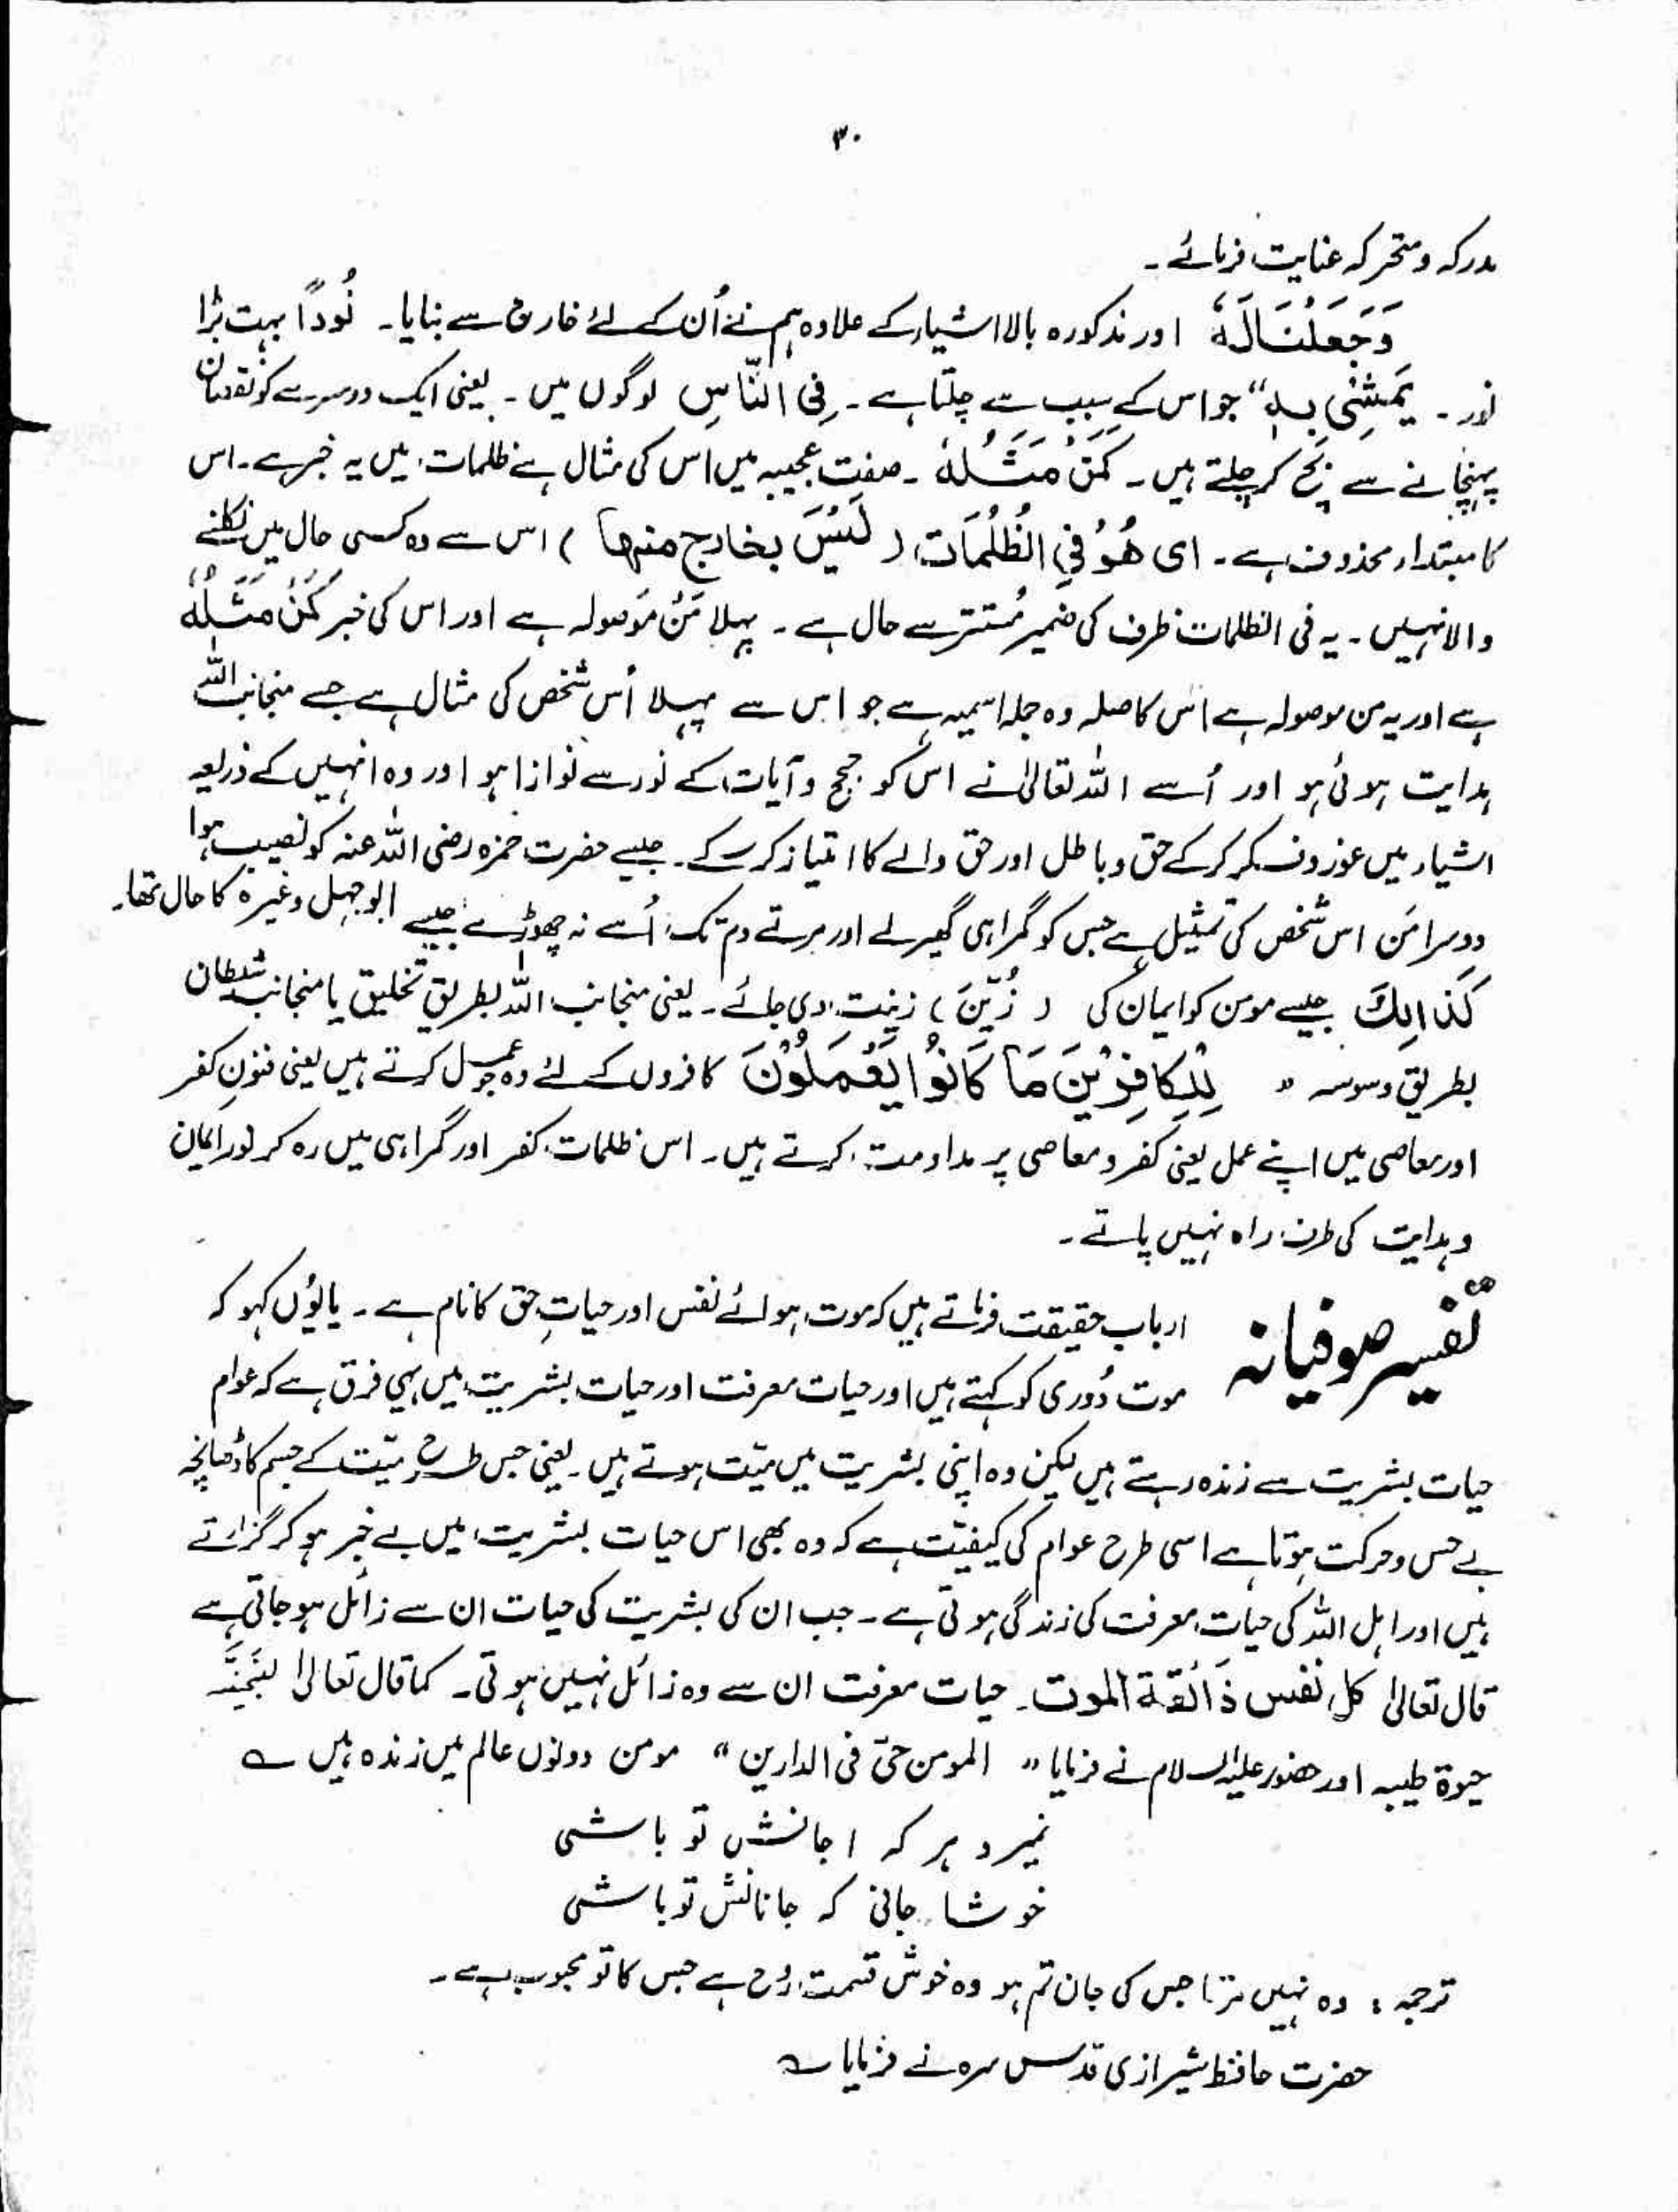 ۳۰
مدرکہ ومتحرکہ عنایت فرمائے۔
وَجَعَلْنَا لَهٗ اور مذکورہ بالا اشیاء کے علاوہ ہم نے اُن کے لئے خارق سے بنایا۔ نُورًا بہت بڑا
نور۔ یَمْشِیْ بِهٖ“ جو اس کے سبب سے چلتا ہے۔ فِی النَّاسِ لوگوں میں۔ یعنی ایک دوسرے کو نقصان
پہنچانے سے بچ کر چلتے ہیں۔ كَمَنْ مَّثَلُهٗ۔ صفت عجیبہ میں اس کی مثال ہے ظلمات، میں یہ خبر ہے۔ اس
کا مبتداء محذوف ہے۔ ای هُوَ فِی الظُّلُمَات (لَیْسَ بخارج منها) اس سے وہ کسی حال میں نکلنے
والا نہیں۔ یہ فی الظلمات ظرف کی ضمیر مُستتر سے حال ہے۔ پہلا مَنْ مَوصولہ ہے اور اس کی خبر كَمَنْ مَّثَلُهٗ
ہے اور یہ من موصولہ ہے اس کا صلہ وہ جملہ اسمیہ ہے جو اس سے پہلا اُس شخص کی مثال ہے جسے منجانب اللہ
ہدایت ہوئی ہو اور اُسے اللہ تعالیٰ نے اس کو حجج وآیات کے نور سے نوازا ہو اور وہ انہیں کے ذریعہ
اشیاء میں غور وفکر کر کے حق و باطل اور حق والے کا امتیاز کر سکے۔ جیسے حضرت حمزہ رضی اللہ عنہ کو نصیب ہوا
دوسرا مَن اس شخص کی تمثیل ہے جس کو گمراہی گھیر لے اور مرتے دم تک اُسے نہ چھوڑے جیسے ابوجہل وغیرہ کا حال تھا۔
كَذٰالِكَ جیسے مومن کو ایمان کی (زُیِّنَ) زینت دی جائے۔ یعنی منجانب اللہ بطریق تخلیق یا منجانب شیطان
بطریق وسوسہ ” لِلْكَافِرِیْنَ مَا كَانُوْا یَعْمَلُوْنَ کافروں کے لئے وہ جو عمل کرتے ہیں یعنی فنونِ کفر
اور معاصی میں اپنے عمل یعنی کفر ومعاصی پر مداومت کرتے ہیں۔ اس ظلمات، کفر اور گمراہی میں رہ کر نور ایمان
وہدایت کی طرف راہ نہیں پاتے۔
تفسیر صوفیانہ ارباب حقیقت فرماتے ہیں کہ موت ہوائے نفس اور حیاتِ حق کا نام ہے۔ یا یُوں کہو کہ
موت دُوری کو کہتے ہیں اور حیات معرفت اور حیات بشریت میں یہی فرق ہے کہ عوام
حیات بشریت سے زندہ رہتے ہیں لیکن وہ اپنی بشریت میں میّت ہوتے ہیں۔ یعنی جس طرح میّت کے جسم کا ڈھانچہ
بے حس وحرکت ہوتا ہے اسی طرح عوام کی کیفیّت ہے کہ وہ بھی اس حیات بشریت میں بے خبر ہو کر گزارتے
ہیں اور اہل اللہ کی حیات معرفت کی زندگی ہوتی ہے۔ جب ان کی بشریت کی حیات ان سے زائل ہو جاتی ہے
قال تعالیٰ کل نفس ذَائقة الموت۔ حیات معرفت ان سے وہ زائل نہیں ہوتی۔ کما قال تعالیٰ
حیوۃ طیبہ اور حضور علیہ السلام نے فرمایا ” المومن حیّ فی الدارین “ مومن دونوں عالم میں زندہ ہیں ے
نمیرد ہر کہ اجانش تو باشی
خوشا جانی کہ جانانش تو باشی
ترجمہ: وہ نہیں مرتا جس کی جان تم ہو وہ خوش قسمت رُوح ہے جس کا تو محبوب ہے۔
حضرت حافظ شیرازی قدس سرہ نے فرمایا ے